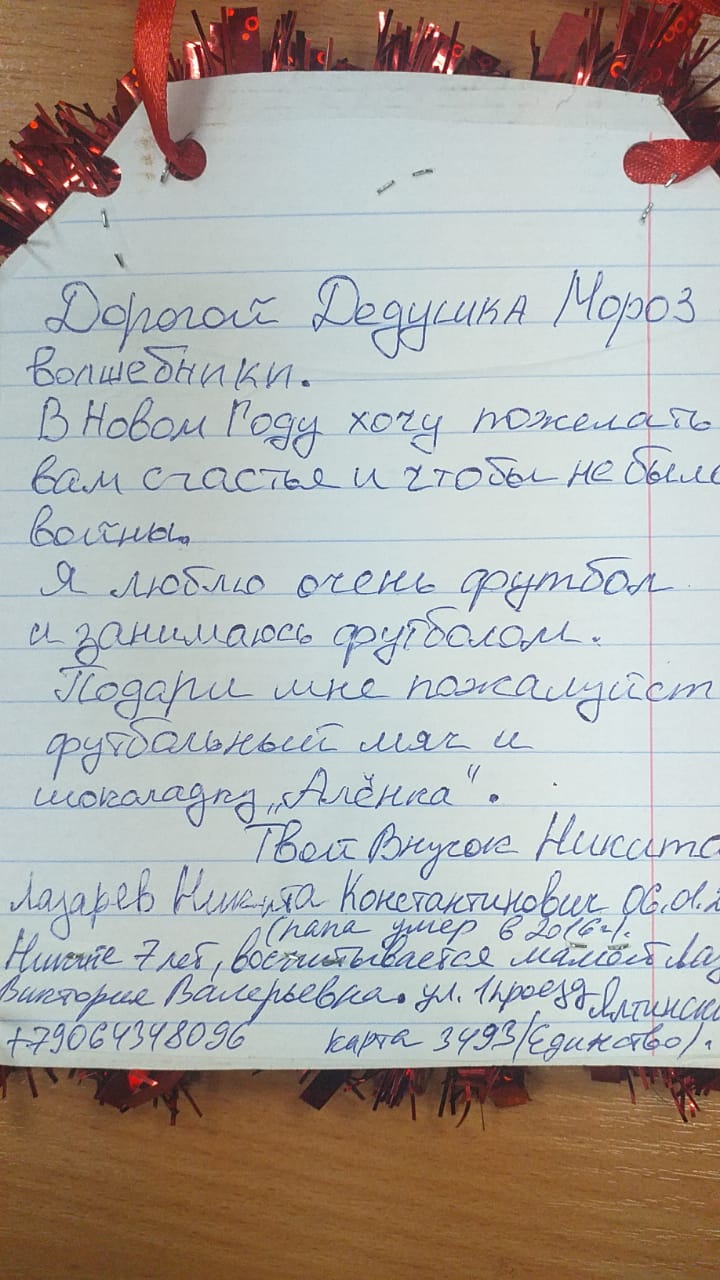 Дорогой Дедушка Мороз
волшебники.
В Новом Году хочу пожелать
вам счастья и чтобы не было
войны.
Я люблю очень футбол
и занимаюсь футболом.
Подари мне пожалуйст
футбольный мяч и
шоколадку „Алёнка".
Твой Внучок Никита
Лазарев Никита Константинович 06.01.2
(папа умер в 2016 г).
Никите 7 лет, воспитывается мамой Лаз
Виктория Валерьевна. ул. 1 проезд Ялтинск
+79064348096 карта 3493 (Единство).